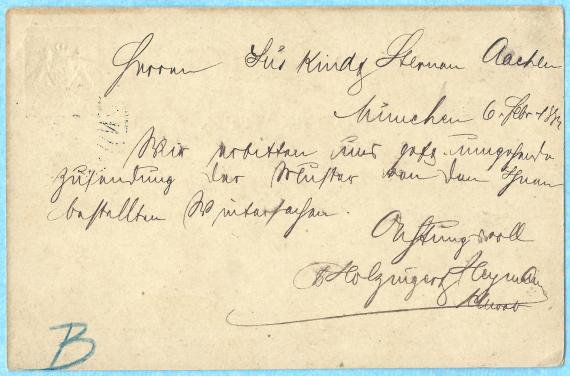 Herren Süs Kind & Sternau Aachen
München 6. Febr. 188
Wir erbitten uns gefl. umgehende
Zusendung der Muster von den Ihnen
bestellten Wintersachen.
Achtungsvoll
Holzinger & Heymann
B